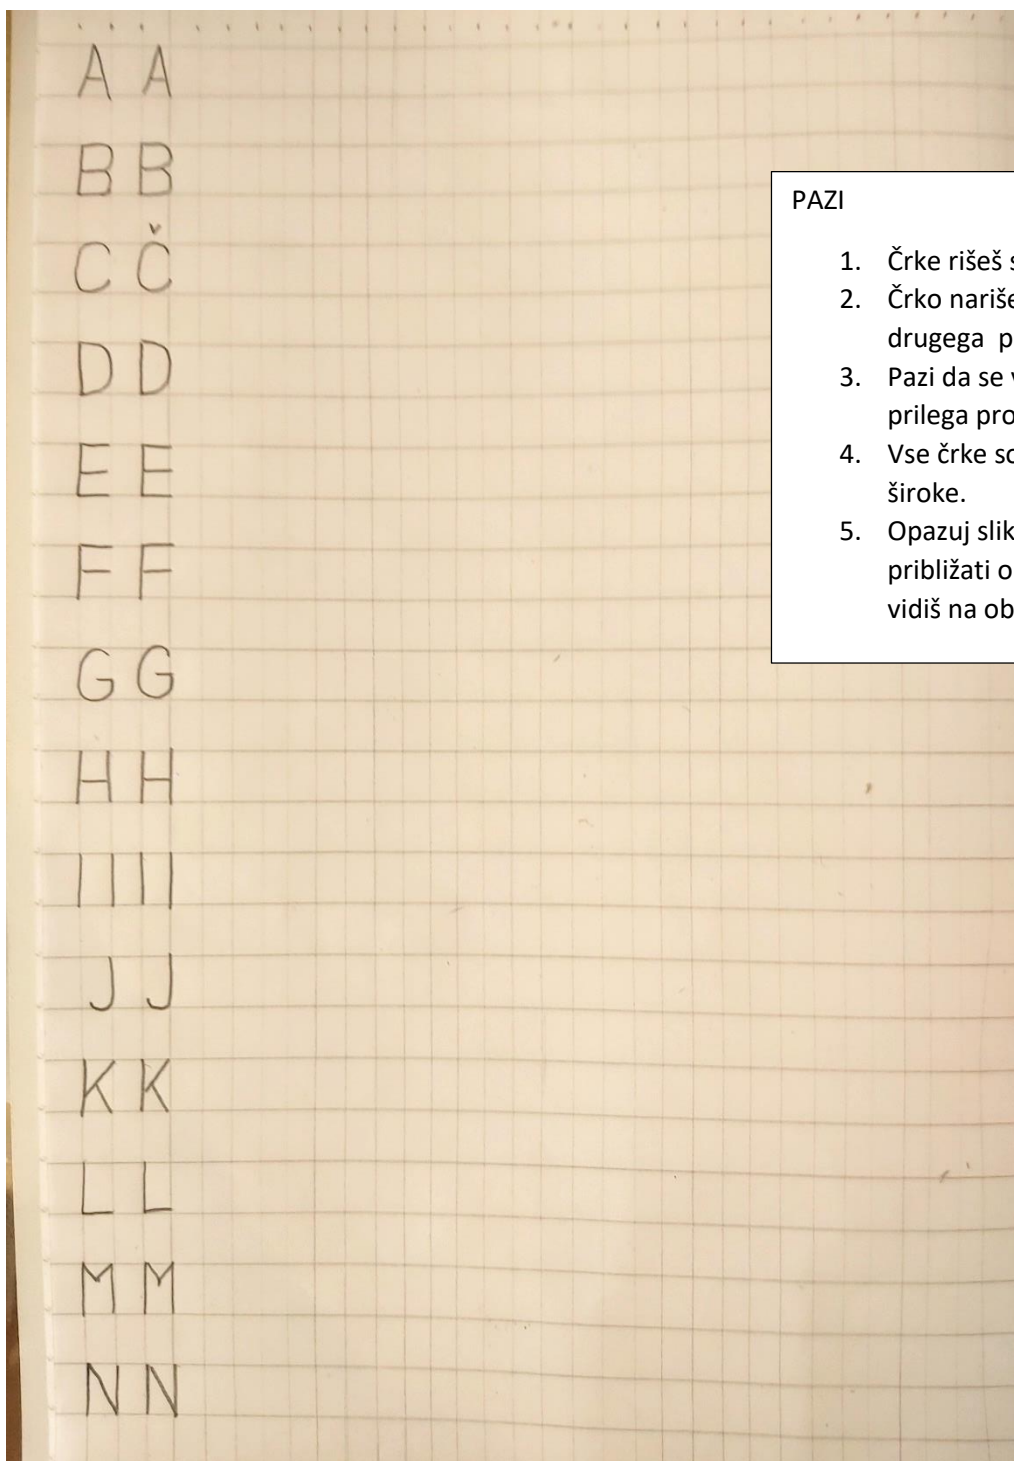 A A
B B
C Č
D D
E E
F F
G G
H H
I I I I
J J
K K
L L
M M
N N
PAZI
1. Črke rišeš
2. Črko
drugega
3. Pazi da se
prilega
4. Vse črke
široke.
5. Opazuj
približati
vidiš na